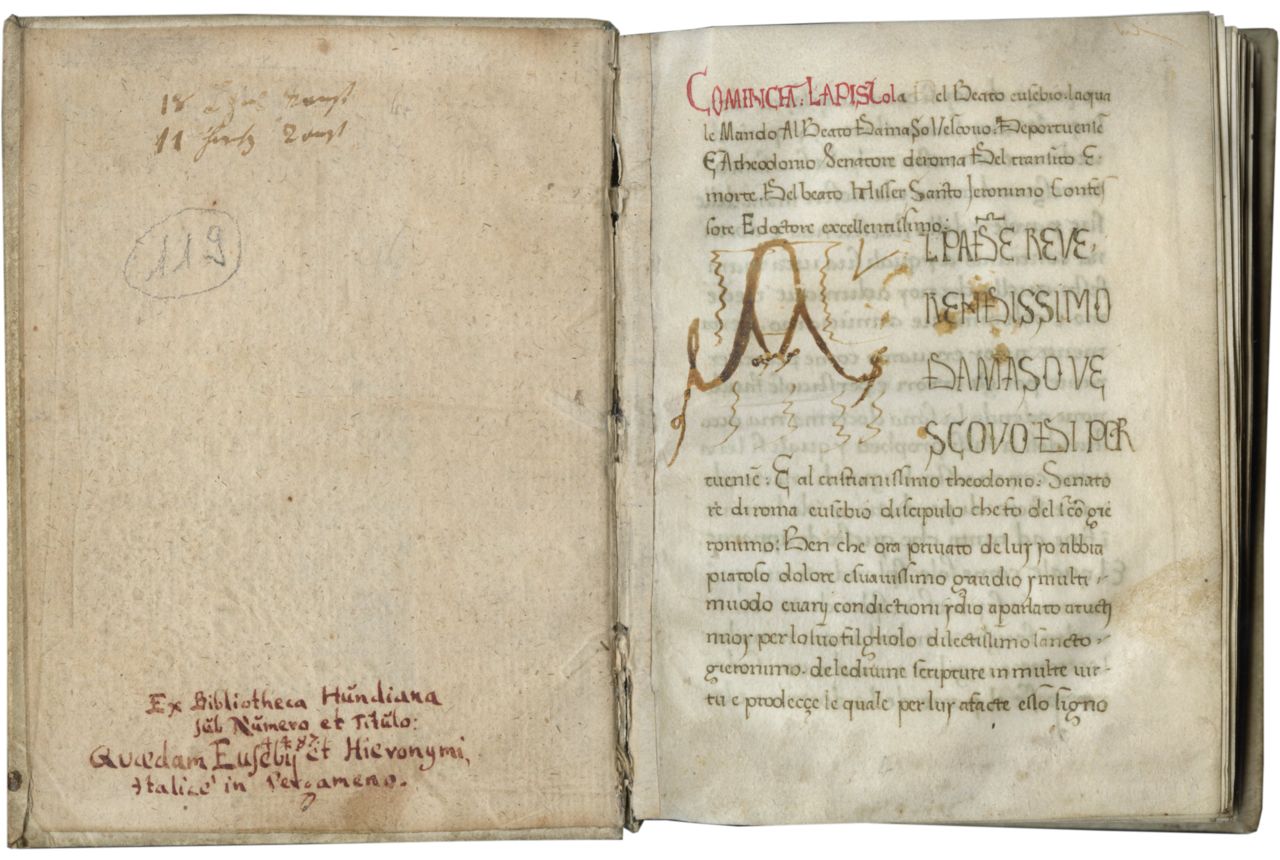 119
Ex Bibliotheca Hundiana
sub Numero et Titulo:
Quædam Eusebij et Hieronymi,
Italice in Pergameno.
COMINCIA. LAPISTola del Beato eusebio. laqua
le Mando Al Beato DamaSo Vescouo. Deportueniē
E Atheodonio Senatore deroma Del transito E.
morte. Del beato Misser Santo Jeronimo Confes
sore E doctore excellentissimo:
AL PADRE REVE.
RENDISSIMO
DAMASO VE
SCOVO DI POR
tueniē: E al cristianissimo theodonio: Senato
re di roma eusebio discipulo che fo del scō gie
ronimo: Ben che ora priuato de luy yo abbia
piatoso dolore e suauissimo gaudio y multi
muodo e uarij condictioni ydio a parlato a tucti
nuoy per lo suo filgliolo dilectissimo sancto
gieronimo. de le diuine scripture in multe uir
tu e prodecçe le quale per luy a facte esso signo